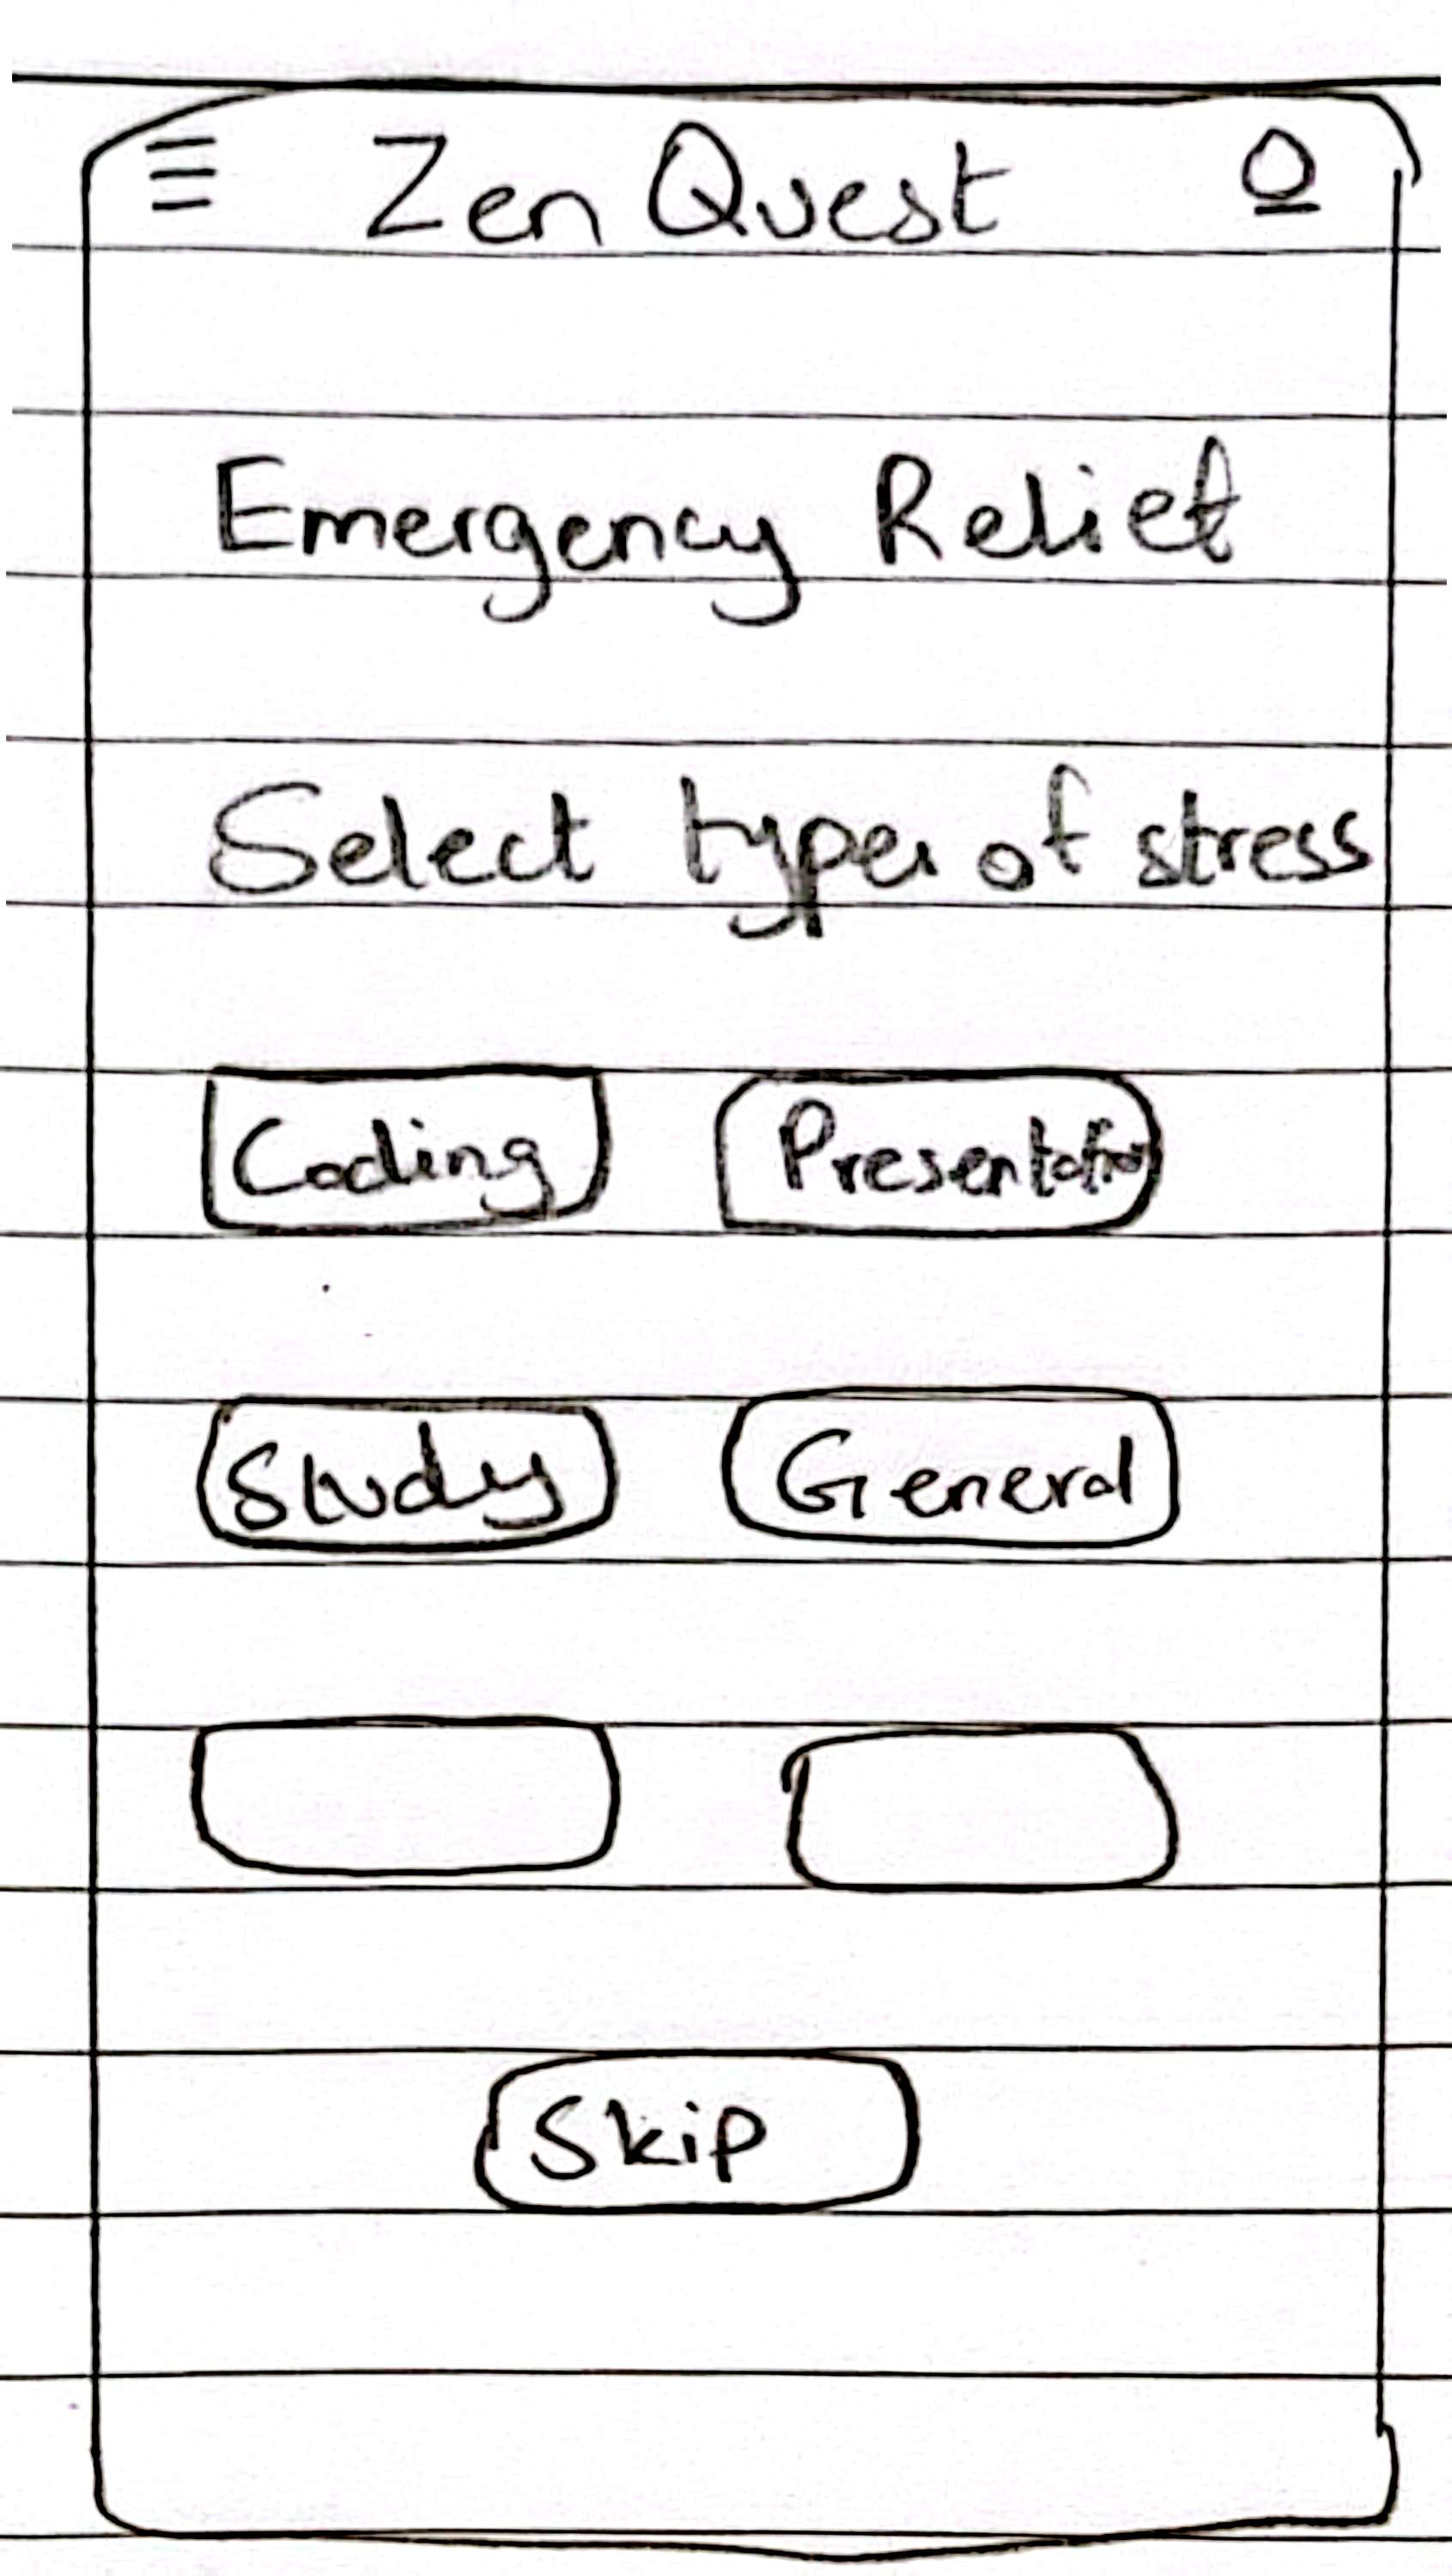 Zen Quest
Emergency Relief
Select types of stress
Coding Presentation
Study General
Skip